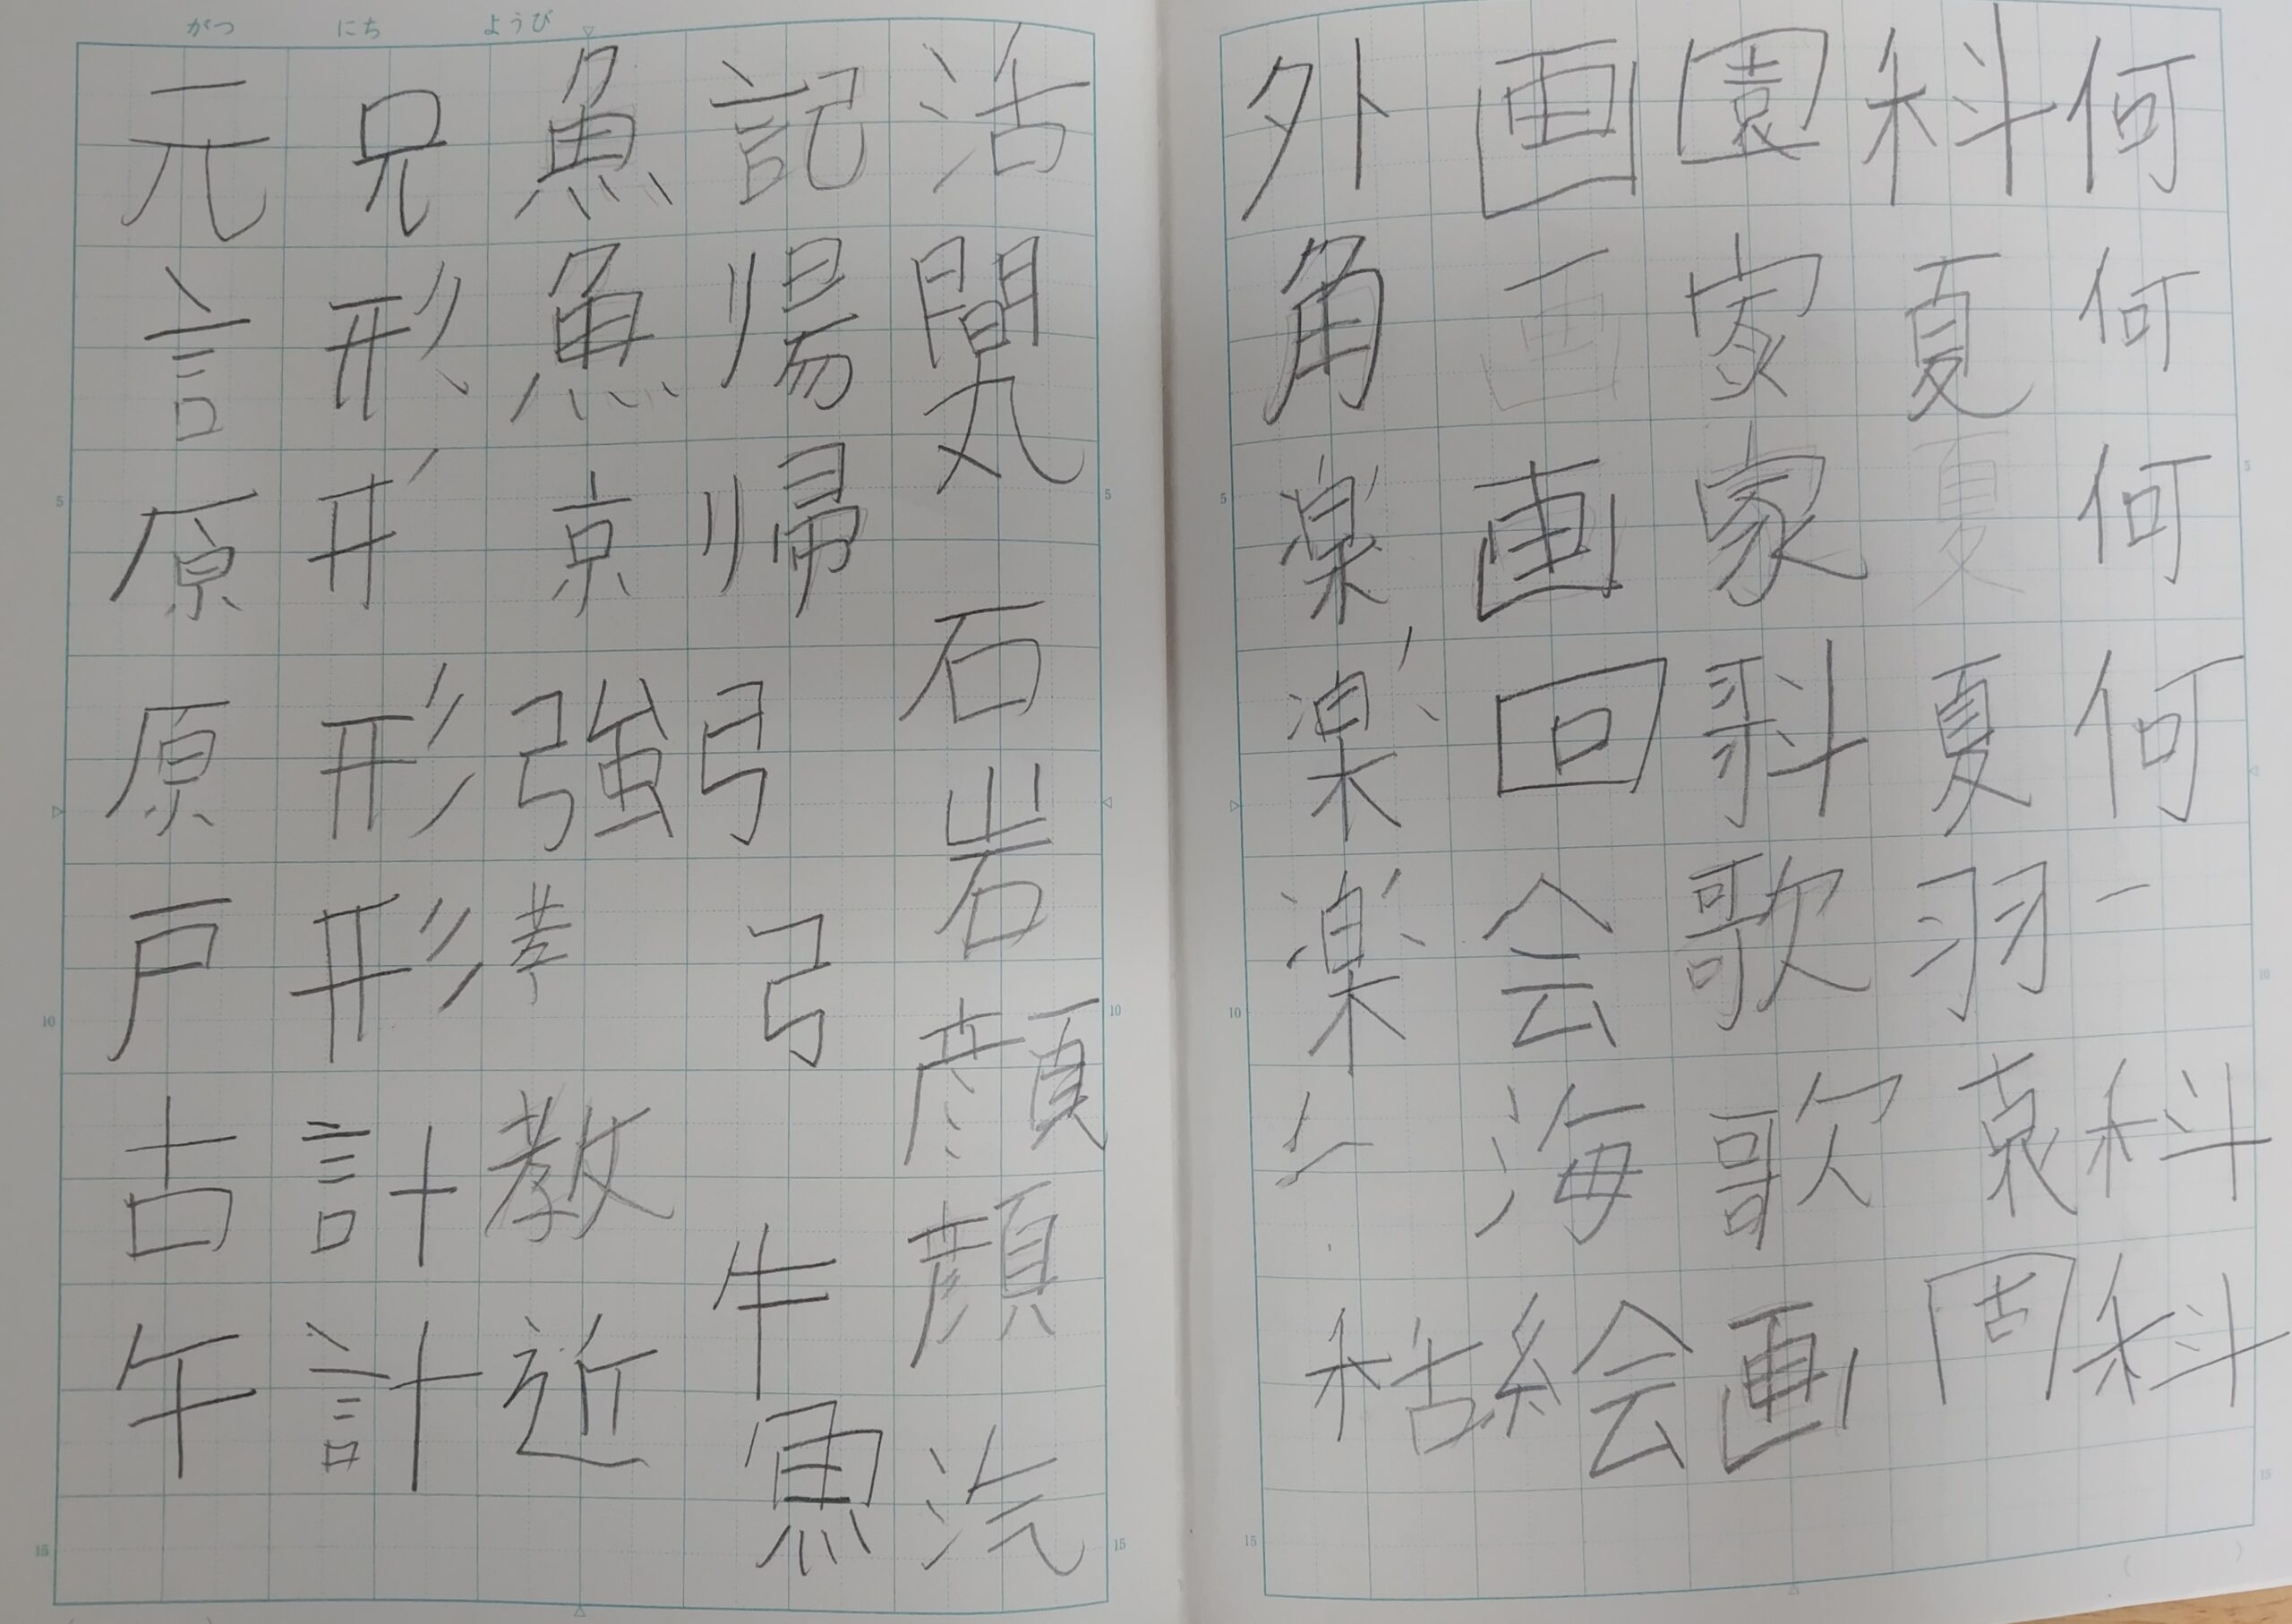 何何何何一科科
科夏夏夏羽
園家家歌歌画
画画画回会海絵
外角楽楽楽
活間丸石岩顔顔汽
記帰弓弓牛魚
魚魚京強教近
兄形形形形計計
元言原原戸古午
がつ にち ようび
5
10
15
5
10
15
5
10
15
5
10
15